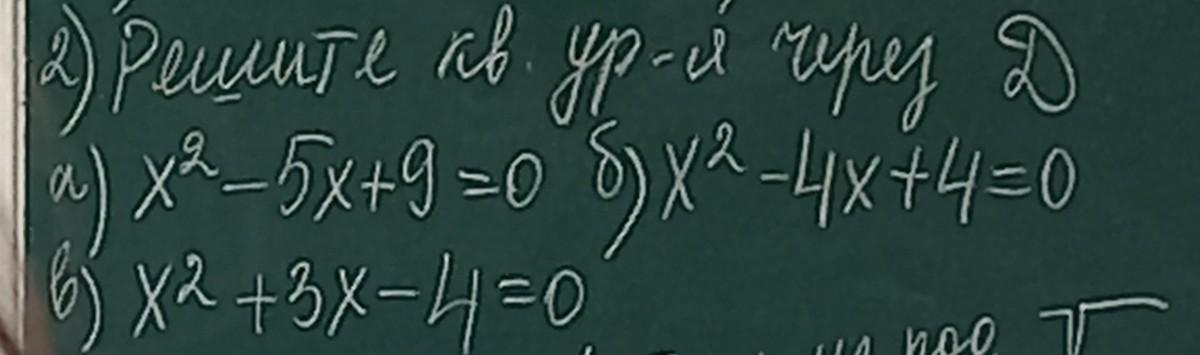 2) Решите кв. ур-я через D
а) x² - 5x + 9 = 0 б) x² - 4x + 4 = 0
в) x² + 3x - 4 = 0
под √